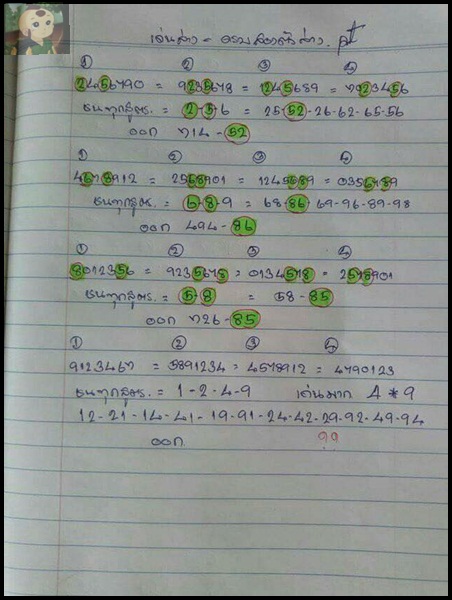 เด่นล่าง - ตรมสถาตร์ล่าง.
① ② ③ ④
2456790 = 9235678 = 1245689 = 7023456
ชนทุกสูตร. = 2-5-6 = 25-52-26-62-65-56
ออก 714-52
① ② ③ ④
4678912 = 2568901 = 1245689 = 0356789
ชนทุกสูตร. = 6-8-9 = 68-86-69-96-89-98
ออก 494-86
① ② ③ ④
8012356 = 9235678 = 0134578 = 2578901
ชนทุกสูตร. = 5-8 = 58-85
ออก 726-85
① ② ③ ④
9123467 = 5891234 = 4578912 = 4790123
ชนทุกสูตร. = 1-2-4-9 เด่นมาก 4*9
12-21-14-41-19-91-24-42-29-92-49-94
ออก ??